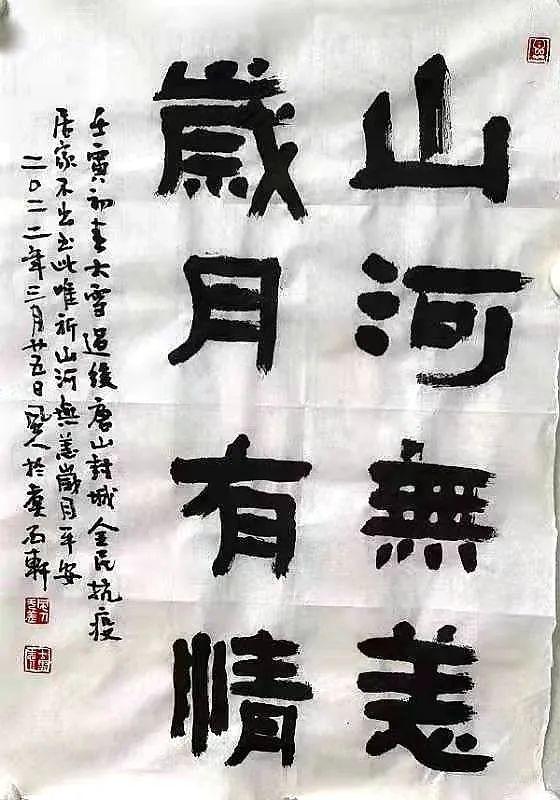 山河無恙
歲月有情
壬寅初春大雪過後唐山封城全民抗疫
居家不出書此唯祈山河無恙歲月平安
二〇二二年三月廿五日
於虞石軒